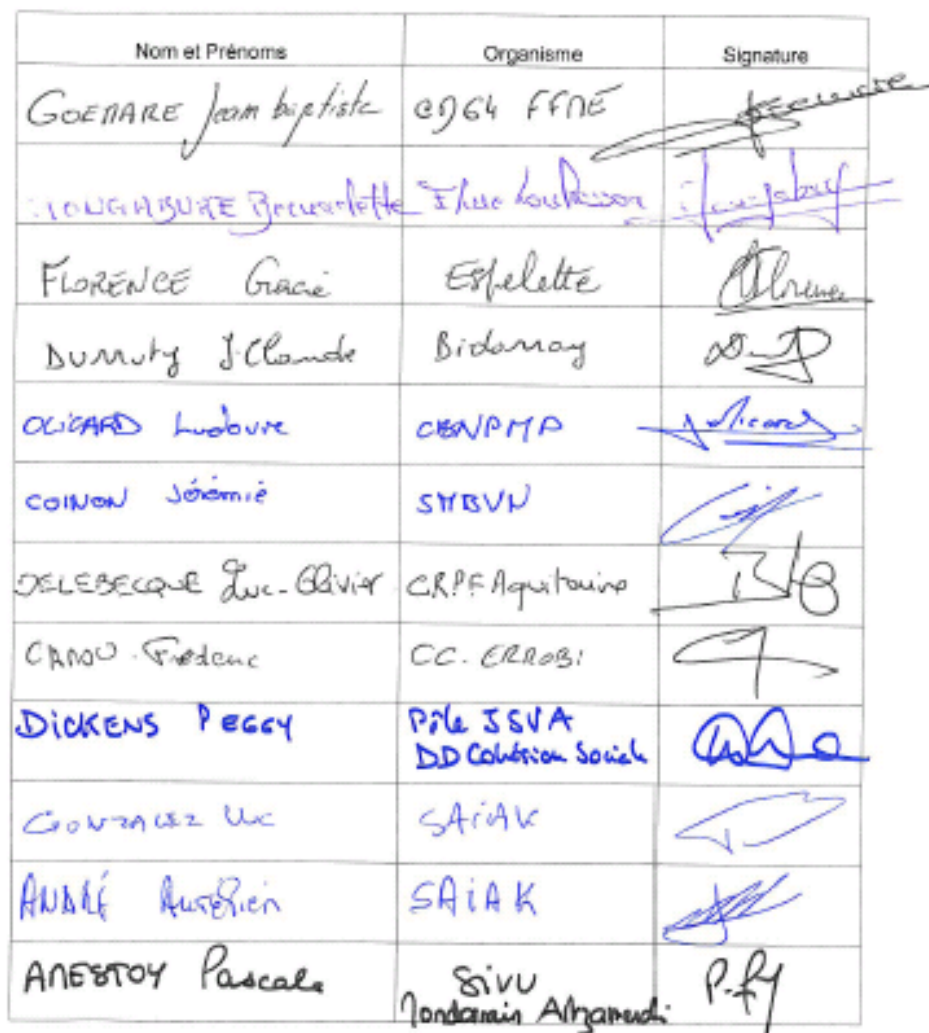 Nom et Prénoms Organisme Signature
GOEMARE Jean baptiste CD64 FFME
Bernadette
FLORENCE Gracie Espelette
Durruty J. Claude Bidarray
OLICARD Ludovic CBNPMP
COINON Jérémie SMBVN
DELEBECQUE Luc-Olivier C.R.P.F Aquitaine
CC. ERROBI
DICKENS PEGGY Pôle JSVA
DD Cohésion Sociale
GONZALEZ Luc SAIAK
ANDRÉ Aurélien SAIAK
AMESTOY Pascale SIVU